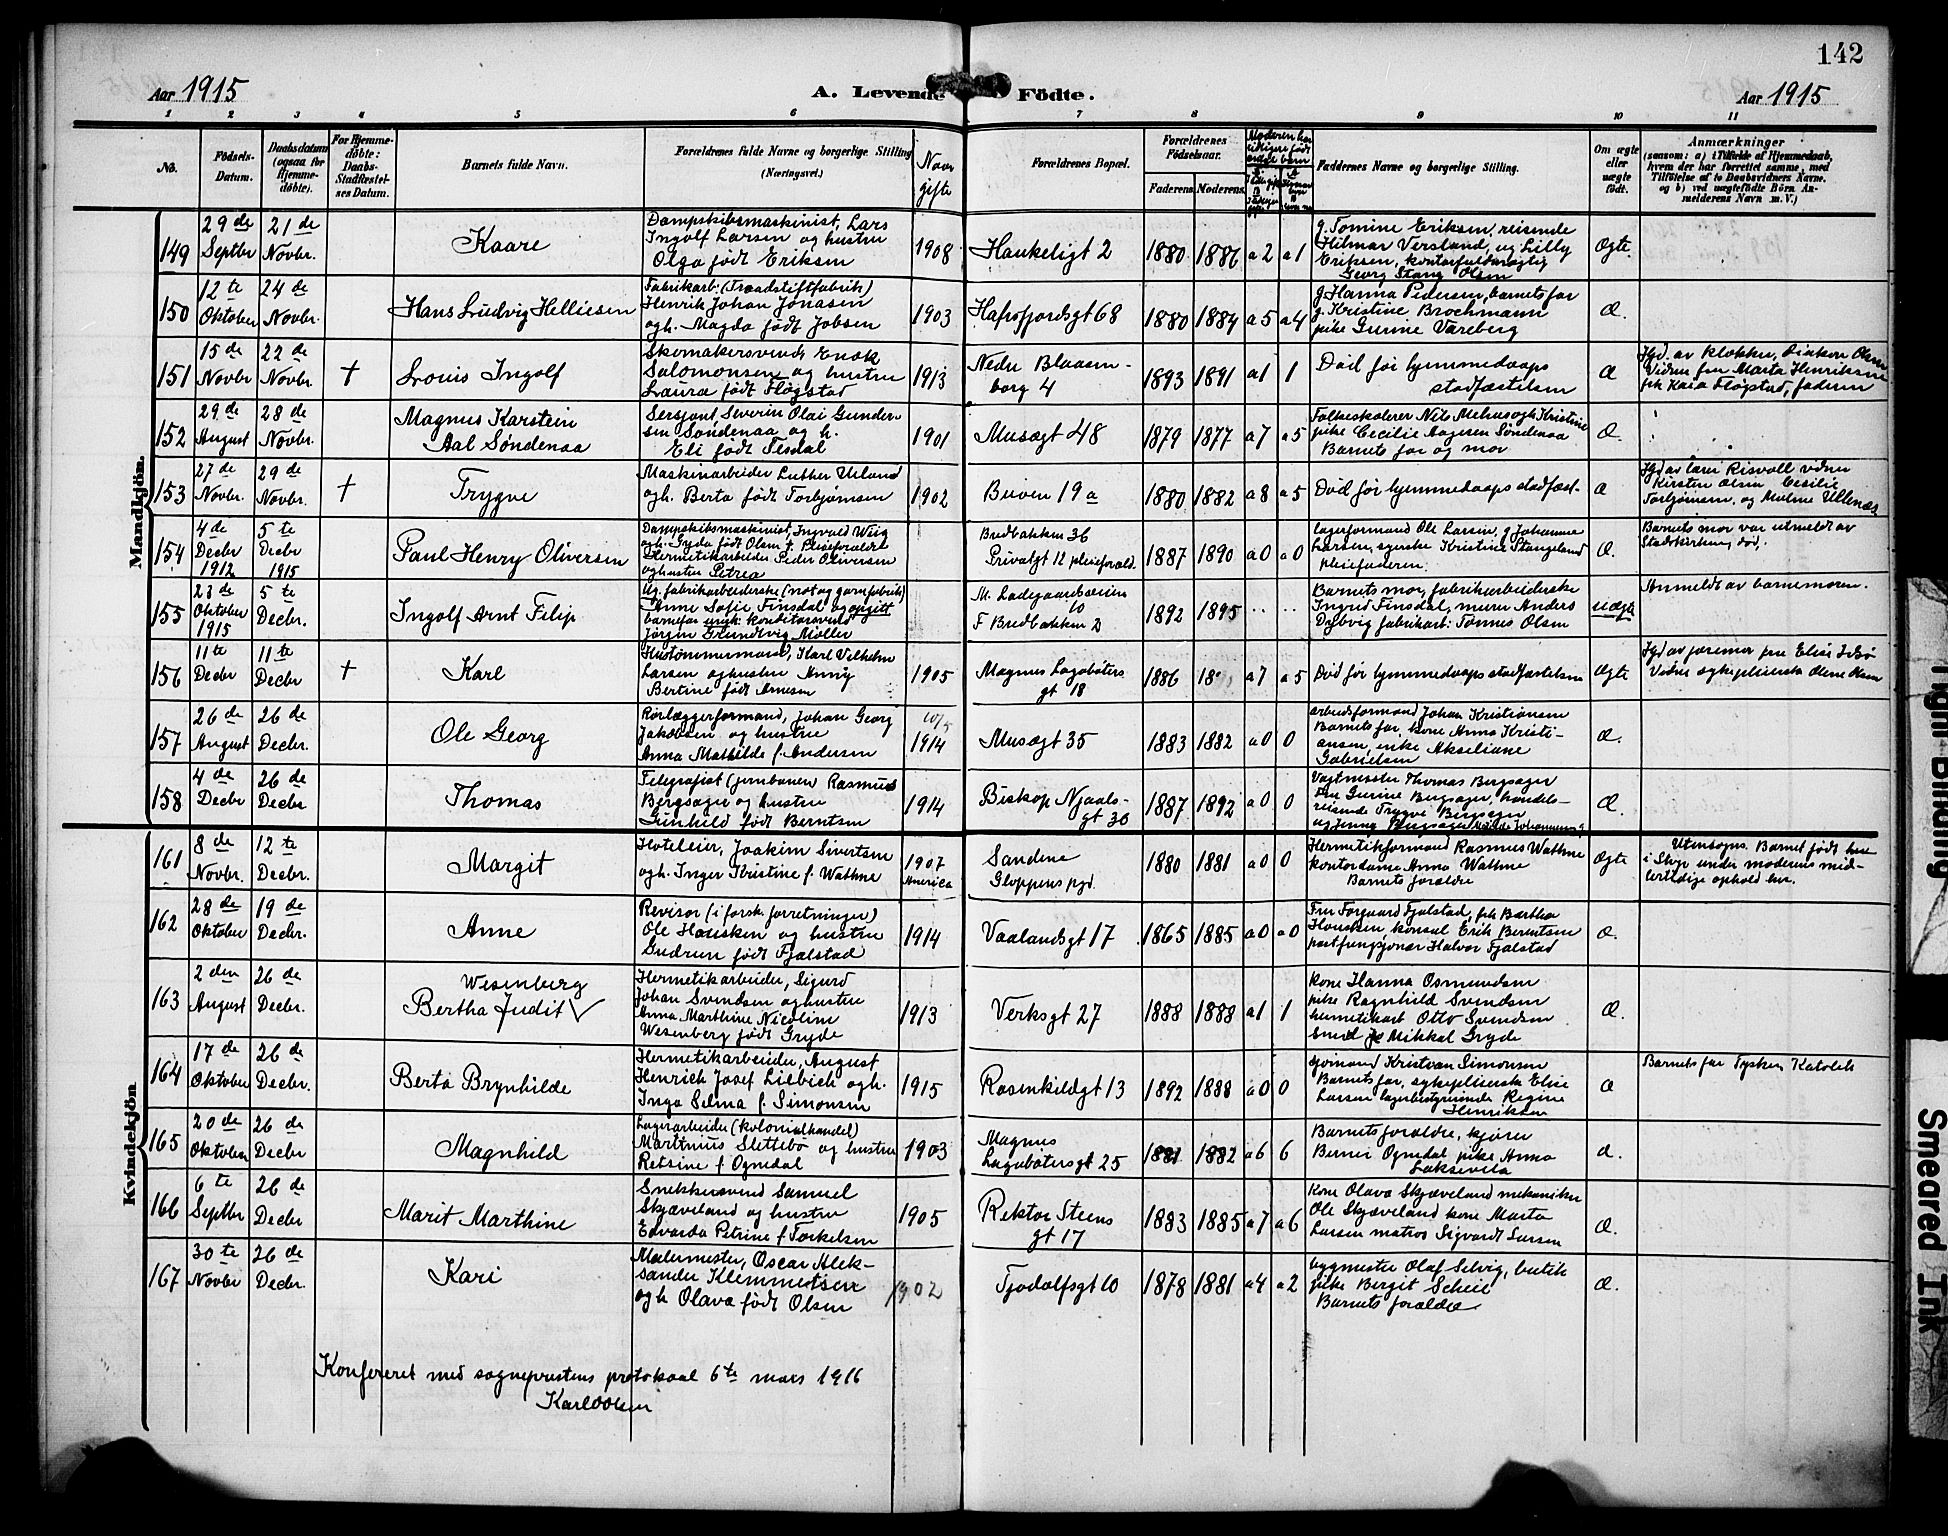 142
Aar 1915 A. Levende Födte. Aar 1915
1 2 3 4 5 6 7 8 9 10 11
No. Födsels-Datum. Daabsdatum (ogsaa for Hjemme-döbte). For Hjemme-döbte: Daabs-Stadfæstel-ses Datum. Barnets fulde Navn. Forældrenes fulde Navne og borgerlige Stilling (Næringsvei.) Naar gifte Forældrenes Bopæl. Forældrenes Födselsaar. Faderens Moderens Faddernes Navne og borgerlige Stilling. Om ægte eller uægte födt. Anmærkninger
(saasom: a) i Tilfælde af Hjemmedaab,
hvem der har forrettet samme, med
Tilföielse af to Daabsvidners Navne.
og b) ved uægtefödte Börn An-
melderens Navn m. V.)
Mandkjön.
149 29de Septbr 21de Novbr. Kaare
Dampskibsmaskinist, Lars
Ingolf Larsen og hustru
Olga født Eriksen
1908 Haukeligt 2 1880 1886 a 2 a 1
g. Tomine Eriksen, reisende
Hilmar Versland, ug. Lilly
Eriksen, kontorfuldmægtig
Georg Stang Olsen
Ægte.
150 12te Oktober 24de Novbr. Hans Ludvig Helliesen
Fabrikarb. (Traadstiftfabrik)
Henrik Johan Jonasen
og h. Magda født Jobsen
1903 Hafrsfjordsgt 68 1880 1884 a 5 a 4
g. Hanna Pedersen, barnets far
g. Kristine Brochmann
pike Gurine Vareberg
Æ.
151 15de Novbr 22de Novbr. † Louis Ingolf
Skomakersvend Enok
Salomonsen og hustru
Laura født Fløgstad
1913 Nedre Blaasen-
borg 4 1893 1891 a 1 1
Død før hjemmedaaps
stadfæstelsen
Æ
Hjd. av klokker, diakon Olsen
Vidner fru Marta Henriksen
frk Kaia Fløgstad, faderen
152 29de August 28de Novbr. Magnus Karstein
Aal Søndenaa
Sersjant, Severin Olai Gunder-
sen Søndenaa og h.
Eli født Tesdal
1901 Musægt 48 1879 1877 a 7 a 5
Folkeskolelærer Nils Mehus og h. Kristine
pike Cecilie Aagesen Søndenaa
Barnets far og mor
Æ.
153 27de Novbr. 29de Novbr. † Trygve
Maskinarbeider Luther Ueland
og h. Berta født Torbjørnsen
1902 Beven 19 a 1880 1882 a 8 a 5
Død før hjemmedaaps stadfæst-
Æ
Hjd av lærer Risvoll vidner
Kirsten Olsen Cecilie
Torbjørnsen, og Malene Ullenæs
154 4de Decbr 1912 5te Decbr 1915 Paul Henry Oliversen
Dampskibsmaskinist, Ingvald Wiig
og h. Gyda født Olsen †. Pleieforældre
Hermetikarbeider Peder Oliversen
og hustru Petrea
Bredbakken 36
Privatgt 12 pleieforæld. 1887 1890 a 0 a 0
Lagerformand Ole Larsen, g. Johanne
Larsen, syerske Kristine Stangeland
pleiefaderen.
Æ.
Barnets mor var utmeldt av
Statskirken, død.
155 23de Oktober 1915 5te Decbr. Ingolf Arnt Filip
Ug. fabrikarbeiderske (not og garnfabrik)
Anne Sofie Finsdal og opgitt
barnefar ungk. konditorsvend
Jørgen Grundtvig Møller
M. Ladegaardsveien
10
F Bredbakken 2 1892 1895
Barnets mor, fabrikarbeiderske
Ingrid Finsdal, murer Anders
Dybvig fabrikarb: Tønnes Olsen
uægte
Anmeldt av barnemoren.
156 11te Decbr 11te Decbr † Karl
Hustømmermand, Karl Vilhelm
Larsen og hustru Anny
Bertine født Arnesen
1905 Magnus Lagabøters
gt 18 1886 a 7 a 5
Død før hjemmedaaps stadfæstelsen
Ægte
Hjd av jordmor fru Elise Isbø
Vidner sykepleierske Olene Aasen
157 26de August 26de Decbr. Ole Georg
Rørlæggerformand, Johan Georg
Jakobsen og hustru
Anna Mathilde f. Andersen
10/5
1914 Musægt 35 1883 1882 a 0 0
arbeidsformand Johan Kristiansen
Barnets far, kone Anna Kristi-
ansen, enke Akseliane
Gabrielsen
Æ.
158 4de Decbr 26de Decbr. Thomas
Telegrafist (jernbanen) Rasmus
Bergsager og hustru
Gunhild født Berntsen
1914 Biskop Njaals-
gt 36 1887 1892 a 0 0
Vagtmester Thomas Bergsager
Fru Gurine Bergsager, handels-
reisende Trygve Bergsager
ug Jenny Bergsager
Æ.
Kvindekjön
161 8de Novbr. 12te Decbr. Margit
Hoteleier, Joakim Sivertsen
og h. Inger Kristine f. Wathne
1907
America Sandene
Gloppens pgd. 1880 1881 a 0 0
Hermetikformand Rasmus Wathne
kontordame Anna Wathne
Barnets forældre
Ægte
Utensogns. Barnet født her
i Stvgr under moderens mid-
lertidige ophold her.
162 28de Oktober 19de Decbr. Anne
Revisor (i forsk. forretninger)
Ole Hausken og hustru
Gudrun født Fjelstad
1914 Vaalandsgt 17 1865 1885 a 0 a 0
Fru Torgaard Fjelstad, frk Bertha
Hausken, konsul Erik Berentsen
postfungsjonær Halvor Fjelstad
Æ.
163 2den August 26de Decbr. Wesenberg
Bertha Judit
Hermetikarbeider, Sigurd
Johan Svendsen og hustru
Anna Marthine Nicoline
Wesenberg født Gryde
1913 Verksgt 27 1888 1888 a 1 1
kone Hanna Osmundsen
pike Ragnhild Svendsen
hermetikarb Otto Svendsen
smed Mikkal Gryde
Æ.
164 17de Oktober 26de Decbr. Berta Brynhilde
Hermetikarbeider, August
Henrich Josef Liebich og h.
Inga Selma f. Simonsen
1915 Rosenkildegt 13 1892 1888 a 0 0
sjømand Kristian Simonsen
Barnets far, sykepleierske Elise
Larsen lagerbestyrerinde Regine
Henriksen
Æ
Barnets far Tysker, Katolik
165 20de Oktober 26de Decbr Magnhild
Lagerarbeider (kolonialhandel)
Martinius Slettebø og hustru
Retsine f Ognedal
1903 Magnus
Lagabøtersgt 25 1881 1882 a 6 6
Barnets forældre, kjører
Berner Ognedal pike Anna
Laksevela
Æ.
166 6te Septbr 26de Decbr Marit Marthine
Snekkersvend Samuel
Skjæveland og hustru
Edvarda Petrine f Torkelsen
1905 Rektor Steens
gt 17 1883 1885 a 7 a 6
Kone Olava Skjæveland mekaniker
Ole Skjæveland kone Marta
Larsen matros Sigvardt Larsen
Æ.
167 30te Novbr 26de Decbr. Kari
Malermester, Oscar Alek-
sander Klemmetsen
og h Olava født Olsen
1902 Tjodolfsgt 10 1878 1881 a 4 a 2
bygmester Olaf Selvig, butik
pike Bergit Scheie
Barnets forældre
Æ.
Konfereret med sogneprestens protokoal 6te mars 1916
Karl Olsen
Tight Binding
Smeared Ink